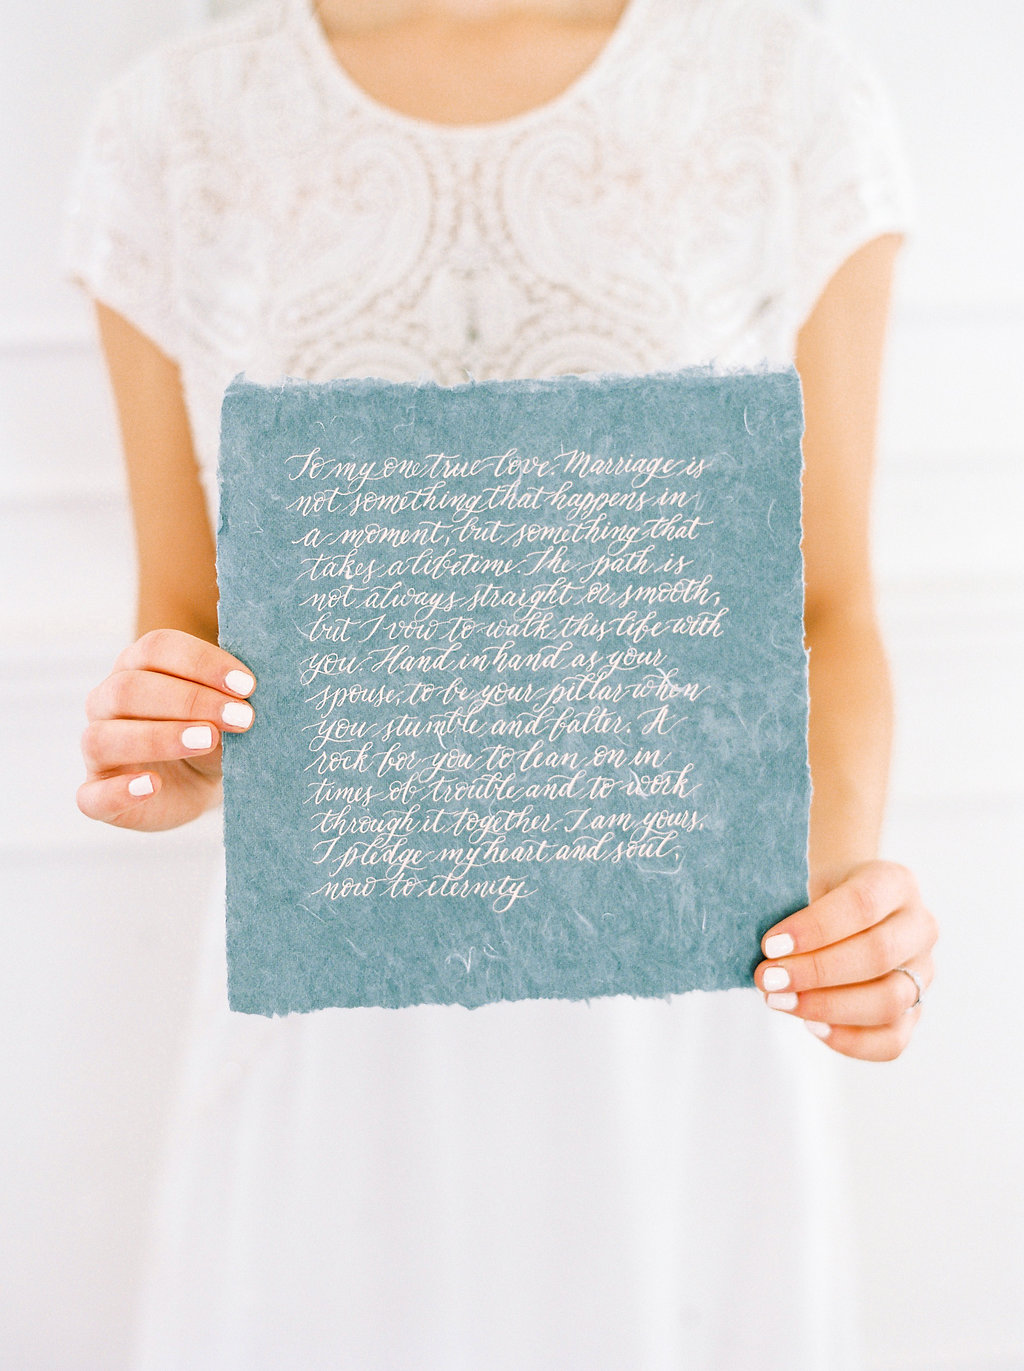 To my one true love. Marriage is
not something that happens in
a moment, but something that
takes a lifetime. The path is
not always straight or smooth,
but I vow to walk this life with
you. Hand in hand as your
spouse, to be your pillar when
you stumble and falter. A
rock for you to lean on in
times of trouble and to work
through it together. I am yours.
I pledge my heart and soul,
now to eternity